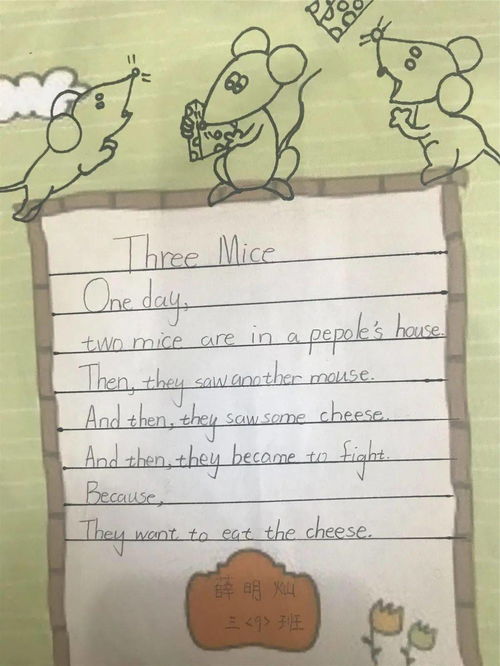 Three Mice
One day,
two mice are in a pepole's house.
Then, they saw another mouse.
And then, they saw some cheese.
And then, they became to fight.
Because,
They want to eat the cheese.
薛明灿
三<9>班